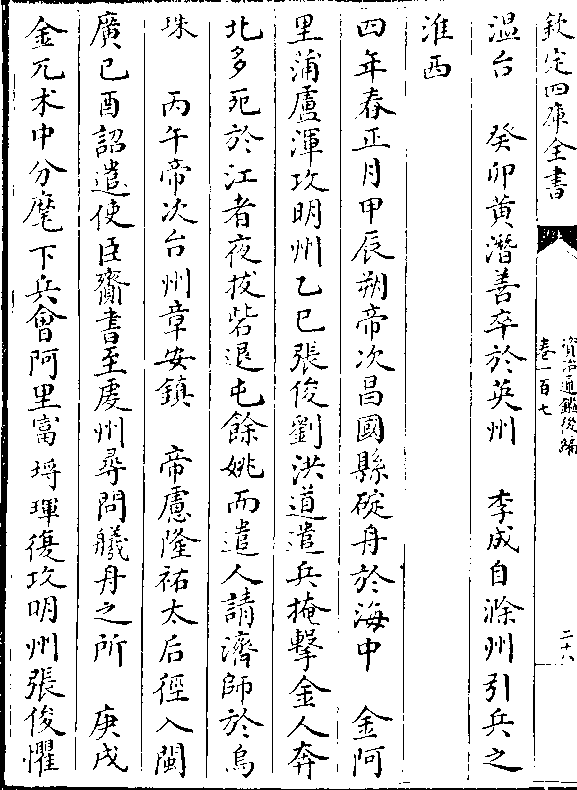 欽定四庫全書
資治通鑑後編
卷一百七
二十八
温台　癸卯黄潛善卒於英州　李成自滁州引兵之
淮西
四年春正月甲辰朔帝次昌國縣碇舟於海中　金阿
里蒲盧渾攻明州乙巳張俊劉洪道遣兵掩擊金人奔
北多死於江者夜拔砦退屯餘姚而遣人請濟師於烏
珠　丙午帝次台州章安鎮　帝慮隆祐太后徑入閩
廣己酉詔遣使臣齎書至虔州尋問艤舟之所　庚戌
金兀术中分麾下兵會阿里富埒琿復攻明州張俊懼